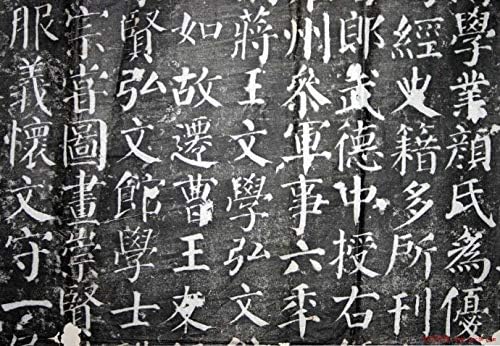 學業顔氏為優
經史籍多所刊
郎武德中授右
州參軍事六年
蔣王文學弘文
如故遷曹王東
賢弘文館學士
宗官圖畫崇賢
服義懷文守一